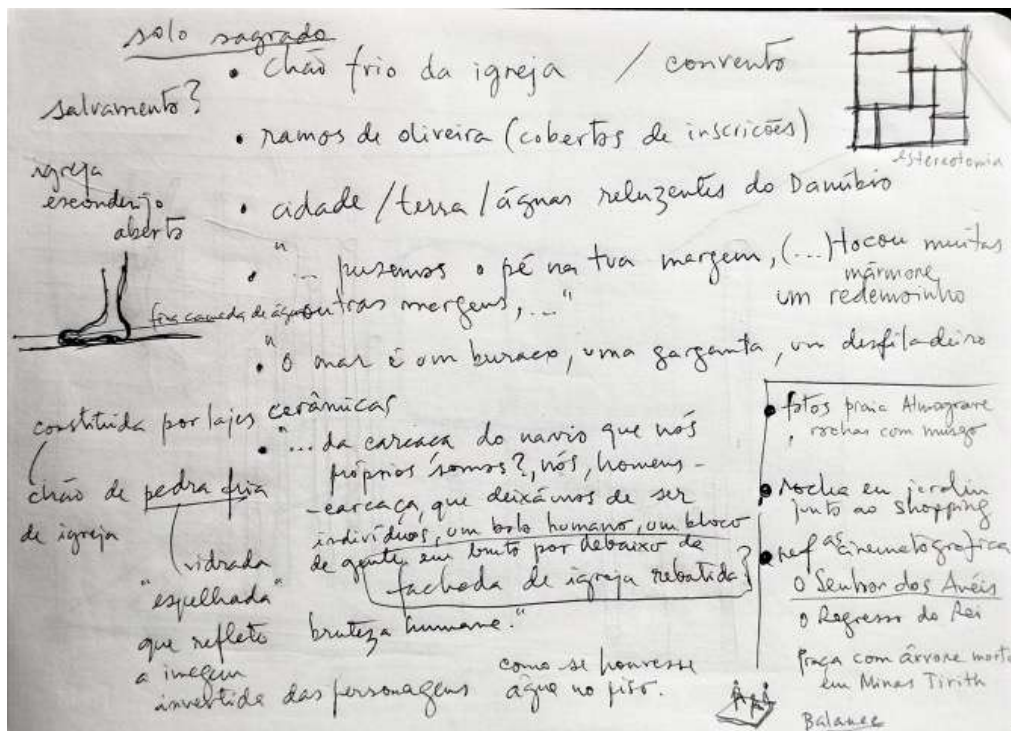 solo sagrado
• chão frio da igreja / convento
salvamento?
• ramos de oliveira (cobertos de inscrições)
estereotomia
igreja
esconderijo
aberto
• cidade / terra / águas reluzentes do Danúbio
• "... pusemos o pé na tua margem, (...) tocou muitas
outras margens, ..."
mármore
um redemoinho
fina camada de água
• "O mar é um buraco, uma garganta, um desfiladeiro
constituída por lajes cerâmicas
chão de pedra fria
de igreja
vidrada
"espelhada"
que reflete
a imagem
invertida das personagens
como se houvesse
água no piso.
• "... da carcaça do navio que nós
próprios somos?, nós, homens-
-carcaça, que deixámos de ser
indivíduos, um bolo humano, um bloco
de gente em bruto por debaixo da
fachada de igreja rebatida?
bruteza humana."
• fotos praia Almograve
rochas com musgo
• rocha em jardim
junto ao shopping
• refª cinematográfica
O Senhor dos Anéis
O Regresso do Rei
Praça com árvore morta
em Minas Tirith
Balance